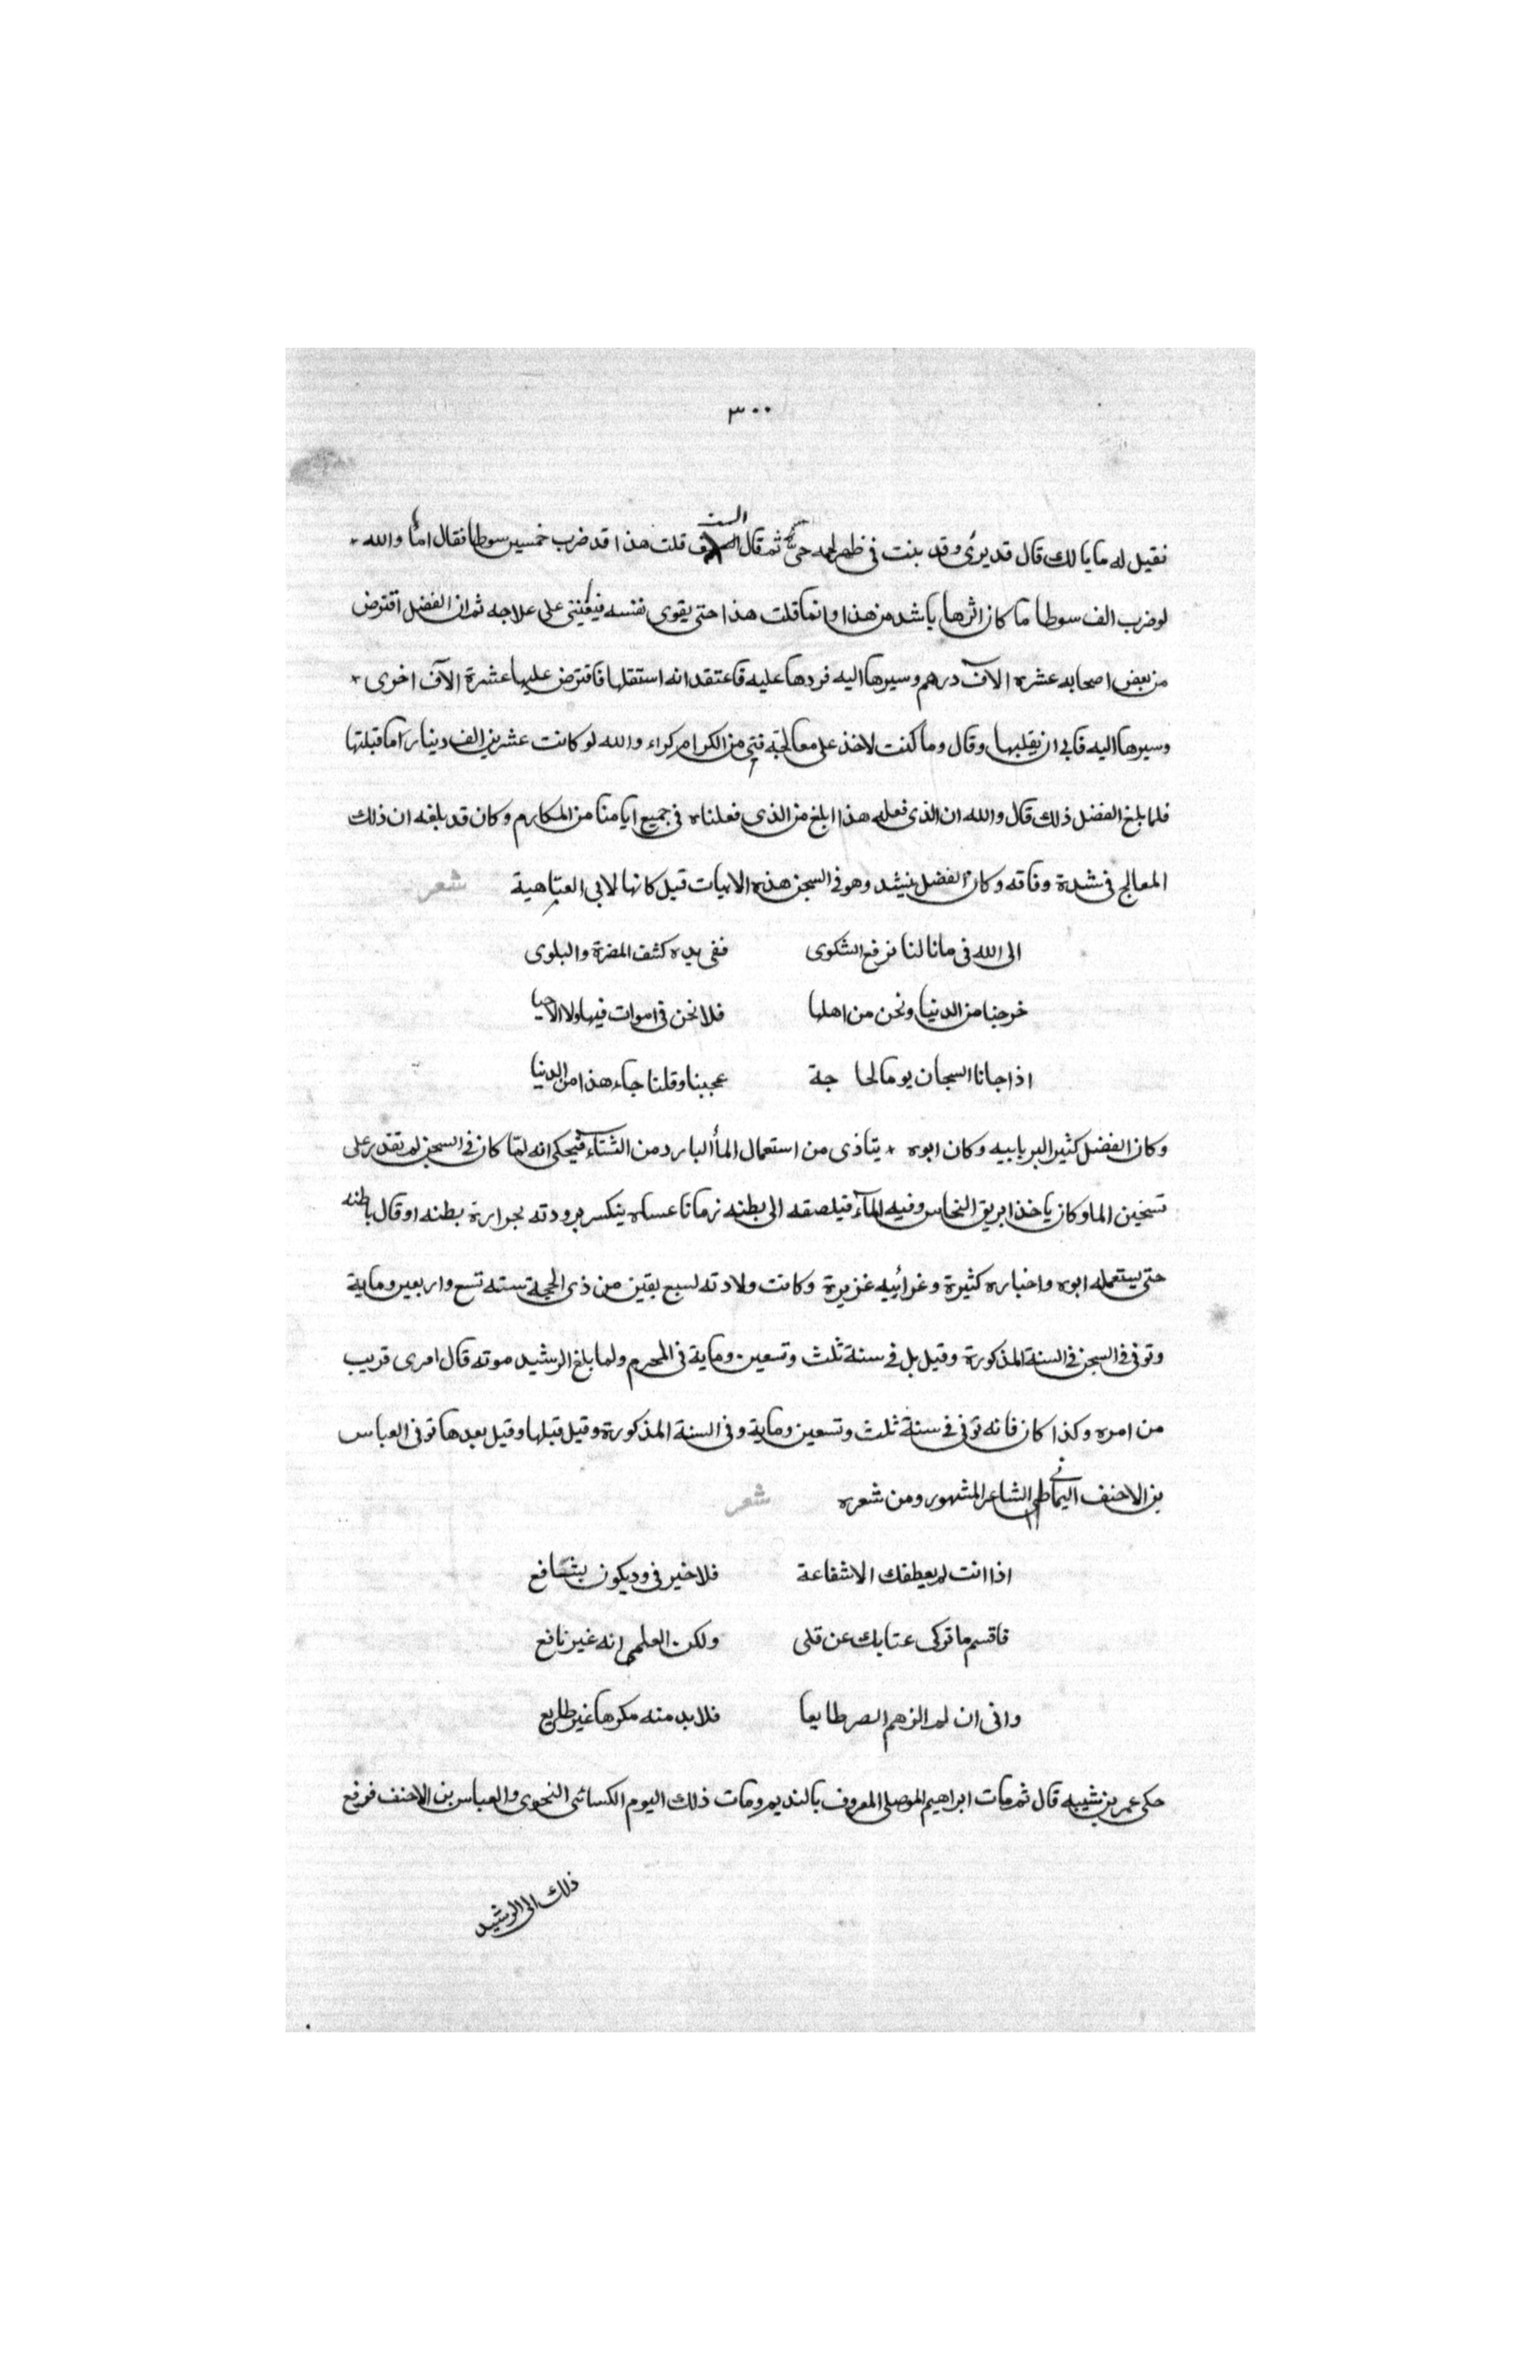 ٣٠٠
فقيل له ما بالك قال قد برئ وقد نبت في ظهره لحم حي ثم قال الست قلت هذا قد ضرب خمسين سوطا فقال اما والله
لو ضرب الف سوطا ما كان اثرها باشد من هذا وانما قلت هذا حتى يقوى نفسه فيعينني على علاجه ثم ان الفضل اقترض
من بعض اصحابه عشره الآف درهم وسيرها اليه فردها عليه فاعتقد انه استقلها فاقترض عليها عشرة الآف اخرى
وسيرها اليه فابى ان يقبلها وقال وما كنت لاخذ على معالجة فتى من الكرام كراء والله لو كانت عشرين الف دينار اما قبلتها
فلما بلغ الفضل ذلك قال والله ان الذى فعله هذا ابلغ من الذى فعلناه فى جميع ايامنا من المكارم وكان قد بلغه ان ذلك
المعالج فى شدة وفاقه وكان الفضل ينشد وهو فى السجن هذه الابيات قيل كانها لابى العتاهية شعر
الى الله فى ما نالنا نرفع الشكوى ففى يده كشف المضرة والبلوى
خرجنا من الدنيا ونحن من اهلها فلا نحن فى اموات فيها ولا الاحيا
اذا جانا السجان يوما لحا جة عجبنا وقلنا جاء هذا من الدنيا
وكان الفضل كثير البر بابيه وكان ابوه يتاذى من استعمال المأ البارد من الشتآء فيحكى انه لمّا كان فى السجن لم تقدر على
تسخين الما وكان ياخذ ابريق النحاس وفيه المآء فيلصقه الى بطنه زمانا عساه ينكسر برودته بحرارة بطنه او قال باطنه
حتى يستعمله ابوه واخباره كثيرة وغرائبه غزيرة وكانت ولادته لسبع بقين من ذى الحجة سنه تسع واربعين وماية
وتوفى فى السجن فى السنة المذكورة وقيل بل فى سنة ثلث وتسعين وماية فى المحرم ولما بلغ الرشيد موته قال امرى قريب
من امره وكذا كان فانه توفى فى سنة ثلث وتسعين وماية وفى السنة المذكورة وقيل قبلها وقيل بعدها توفى العباس
بن الاحنف اليمانى الشاعر المشهور ومن شعره شعر
اذا انت لم يعطفك الا شفاعة فلا خير فى ود يكون بشافع
فاقسم ما تركى عتابك عن قلى ولكن العلمى انه غير نافع
وانى ان لم الزهم الصر طايعا فلابد منه مكرها غير طايع
حكى عمر بن شيبه قال ثم مات ابراهيم الموصلى المعروف بالنديم ومات ذلك اليوم الكسائى النحوى والعباس بن الاحنف فرفع
ذلك الى الرشيد